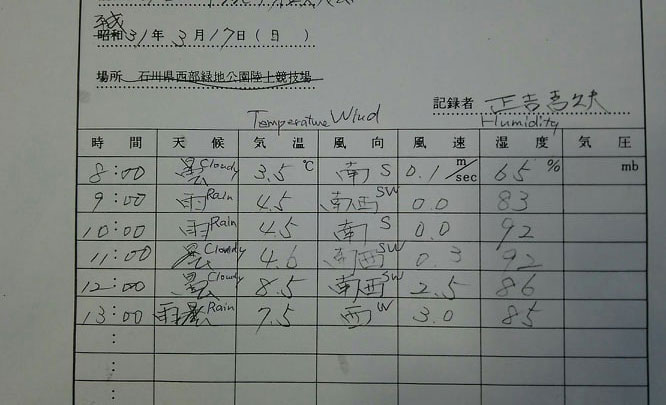 平成
昭和 31年 3月 17日 ( 日 )
場所 石川県西部緑地公園陸上競技場
記録者
Temperature Wind Humidity
時間 天候 気温 風向 風速 湿度 気圧
8:00 曇 Cloudy 3.5 ℃ 南 S 0.1 m/sec 65 % mb
9:00 雨 Rain 4.5 南西 SW 0.0 83
10:00 雨 Rain 4.5 南 S 0.0 92
11:00 曇 Cloudy 4.6 南西 SW 0.3 92
12:00 曇 Cloudy 8.5 南西 SW 2.5 86
13:00 雨 Rain 7.5 西 W 3.0 85
:
:
: